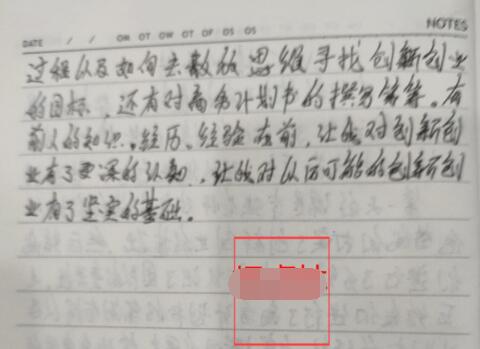 NOTES
DATE / / OM OT OW OT OF OS OS
过程以及如何去散放思维寻找创新创业
的目标，还有对商务计划书的撰写等等。有
前人的知识、经历、经验在前，让我对创新创
业有了更深的认知，让我对以后可能的创新创
业有了坚实的基础。